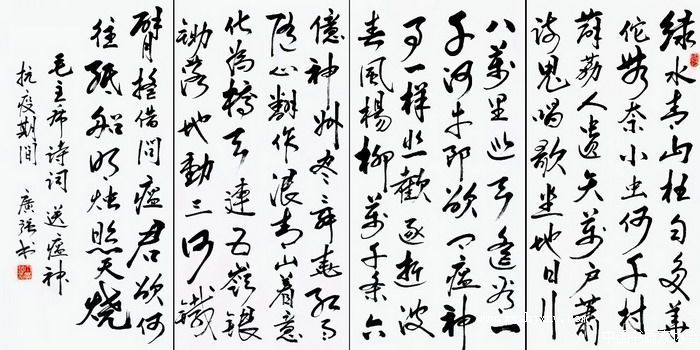 绿水青山枉自多華
佗無奈小虫何千村
薜荔人遗矢萬户萧
疏鬼唱歌坐地日行
八萬里巡天遥看一
千河牛郎欲问瘟神
事一样悲歡逐逝波
春風楊柳萬千条六
億神州尽舜尧红雨
随心翻作浪青山着意
化為橋天連五嶺银
锄落地動三河鐵
臂摇借问瘟君欲何
往纸船明烛照天烧
毛主席诗词 送瘟神
抗疫期间 廣强书